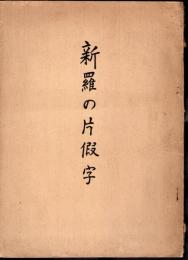 新羅の片假字